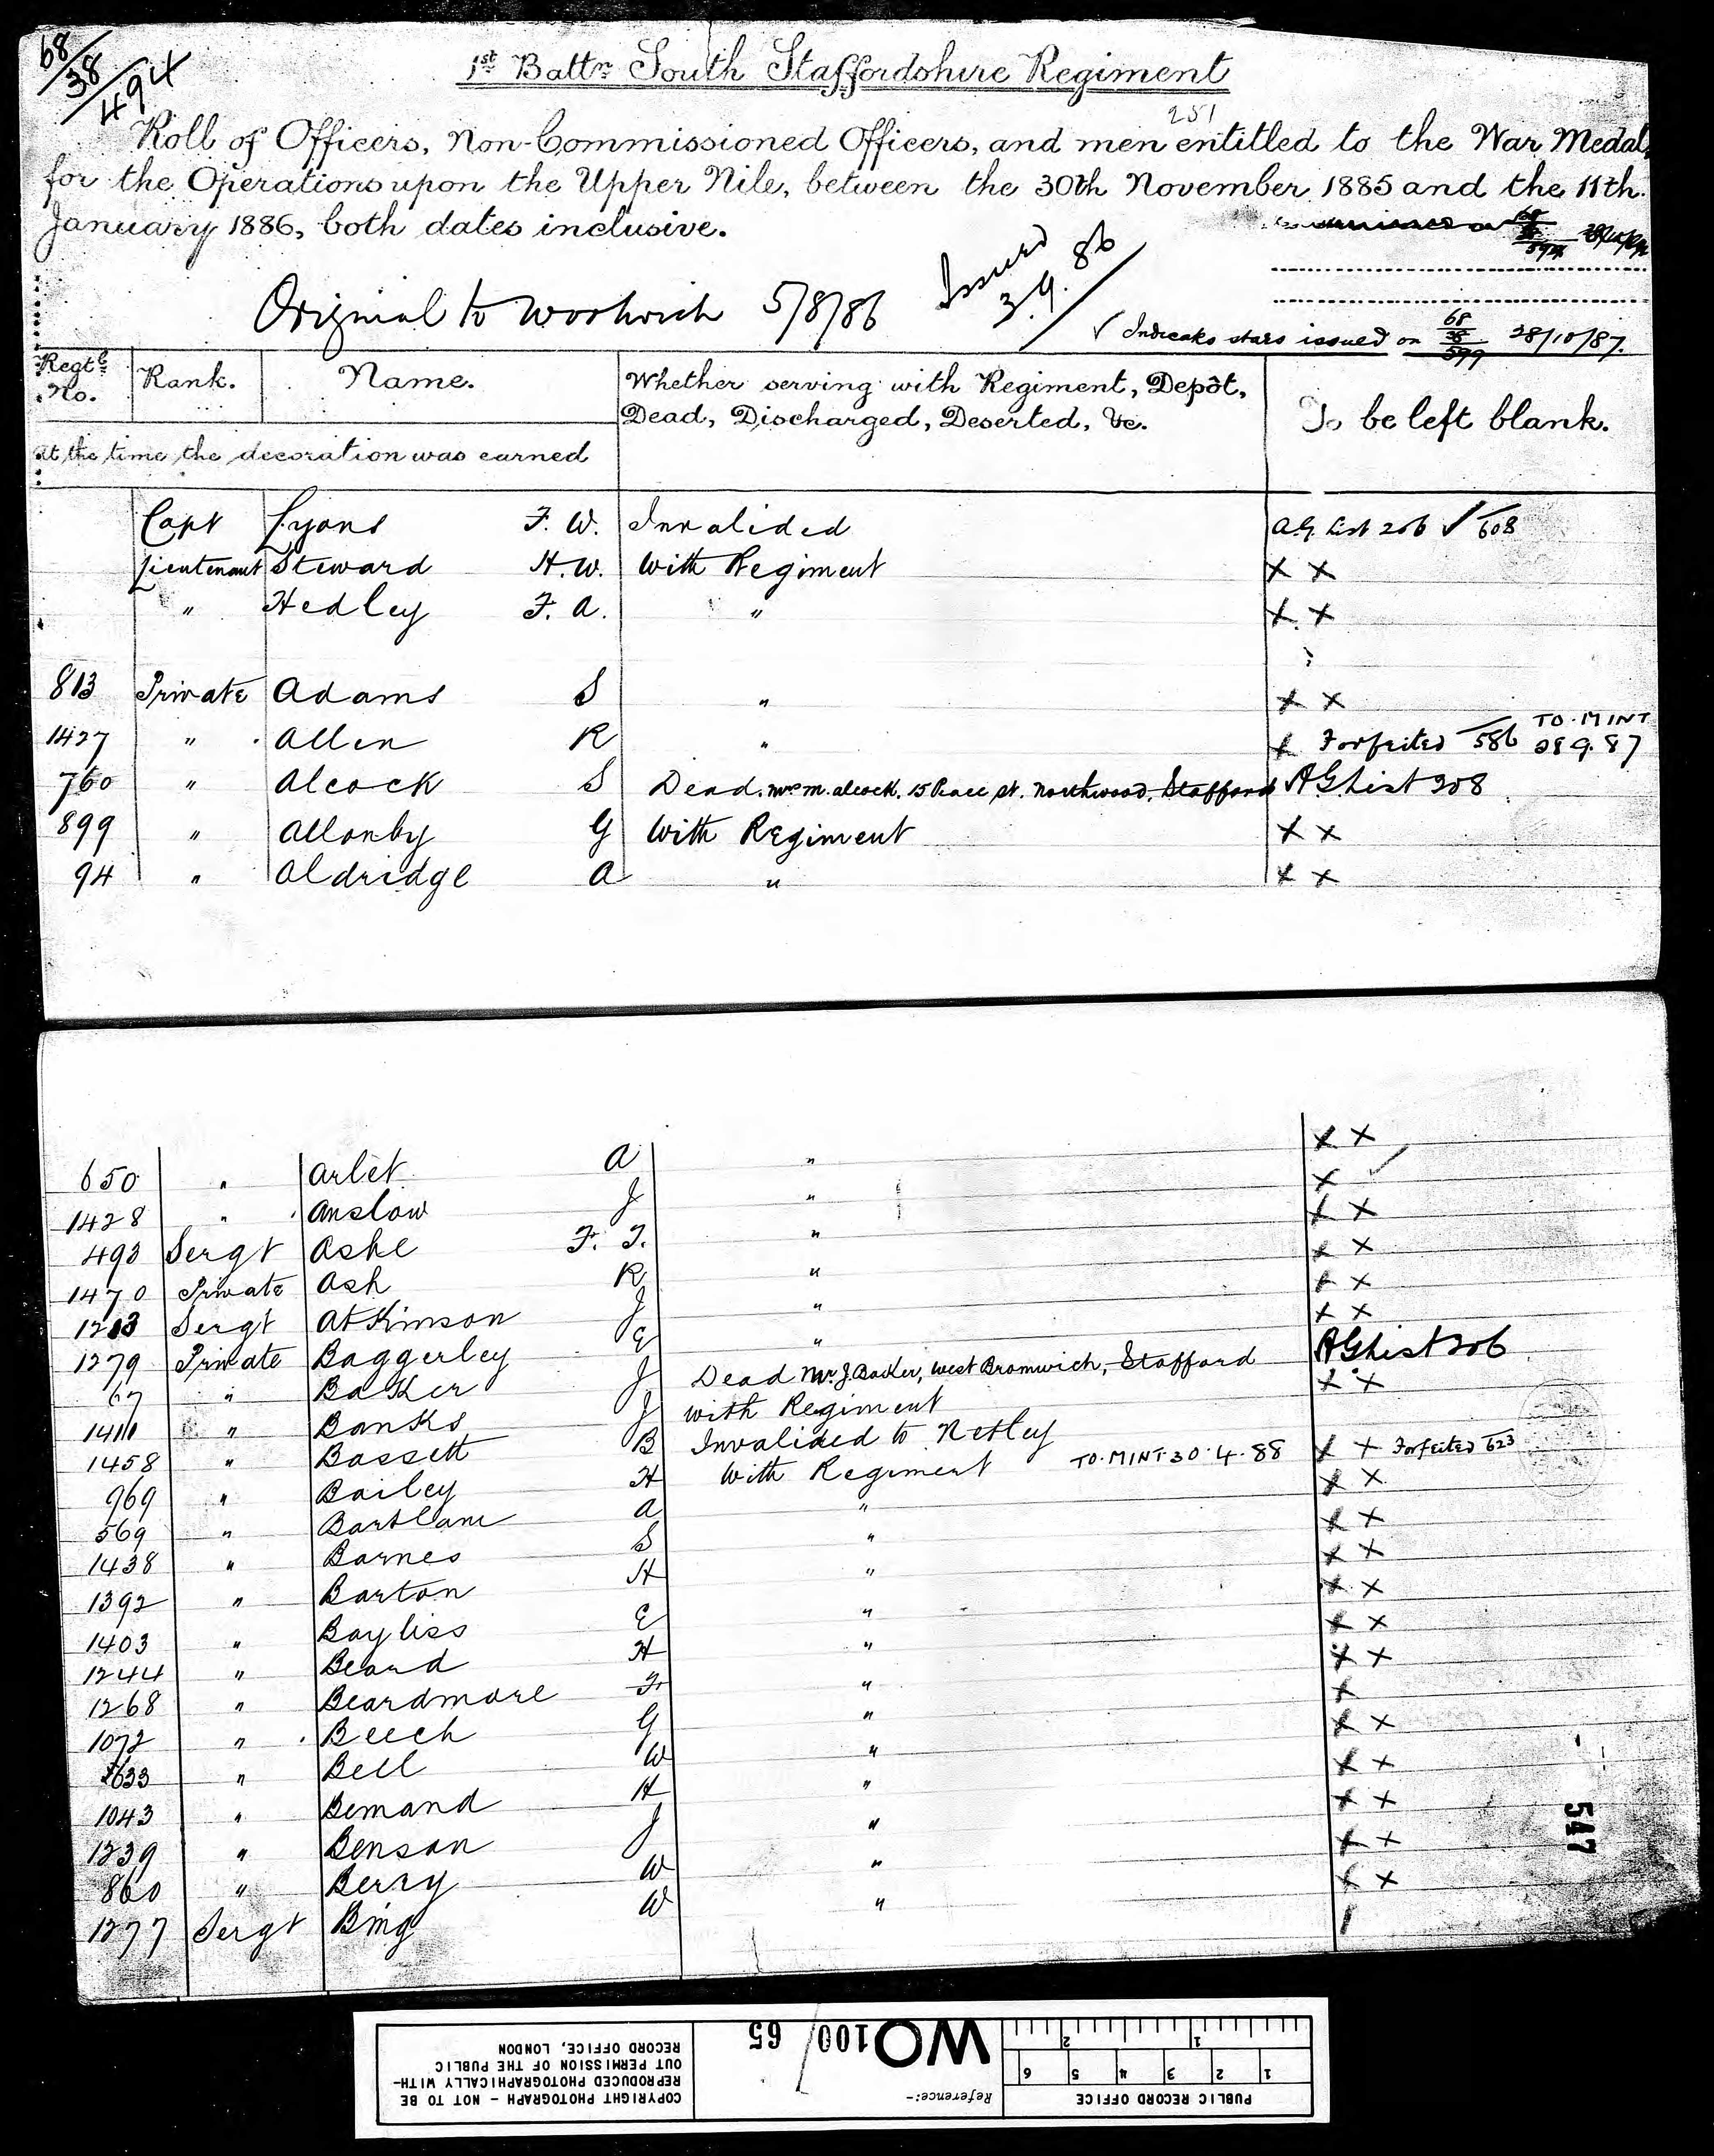 68/38/494
1st Battn South Staffordshire Regiment
251
Roll of Officers, Non-Commissioned Officers, and men entitled to the War Medal,
for the Operations upon the Upper Nile, between the 30th November 1885 and the 11th
January 1886, both dates inclusive.
Original to Woolwich 5/8/86 Issued 3.9.86
✓ Indicates stars issued on 68/38/599 28/10/87.
Regtl No. Rank. Name. Whether serving with Regiment, Depôt, Dead, Discharged, Deserted, &c. To be left blank.
at the time the decoration was earned
Capt Lyons F. W. Invalided A.G. List 206 ✓ 608
Lieutenant Steward H. W. With Regiment X X
" Hedley F. A. " X X
813 Private Adams S " X X
1427 " Allen R " X Forfeited 586 TO. MINT 28 9. 87
760 " Alcock S Dead. Mrs M. Alcock. 15 Peace St. Northwood, Stafford AG List 208
899 " Allonby G With Regiment X X
94 " Aldridge A " X X
650 " Arlet A " X X
1428 " Anslow J " X ✓
493 Sergt Ashe F. T. " X X
1470 Private Ash R " X X
1213 Sergt Atkinson J " X X
1279 Private Baggerley E " X X
67 " Baker J Dead Mr. J. Baker, West Bromwich, Stafford AG List 206
1411 " Banks J with Regiment X X
1458 " Bassett B Invalided to Netley
969 " Bailey H With Regiment TO. MINT 30. 4. 88 X X Forfeited 623
569 " Bartlam A " X X
1438 " Barnes S " X X
1392 " Barton H " X X
1403 " Bayliss E " X X
1244 " Beard H " X X
1268 " Beardmore F. " X X
1072 " Beech G " X
633 " Bell W " X X
1043 " Bemand H " X X
1239 " Benson J " X X
860 " Berry W " X X
1277 Sergt Bing W " X X
547
PUBLIC RECORD OFFICE
1 2 3 4 5 6
1 2
Reference:-
WO 100/65
COPYRIGHT PHOTOGRAPH - NOT TO BE
REPRODUCED PHOTOGRAPHICALLY WITH-
OUT PERMISSION OF THE PUBLIC
RECORD OFFICE, LONDON